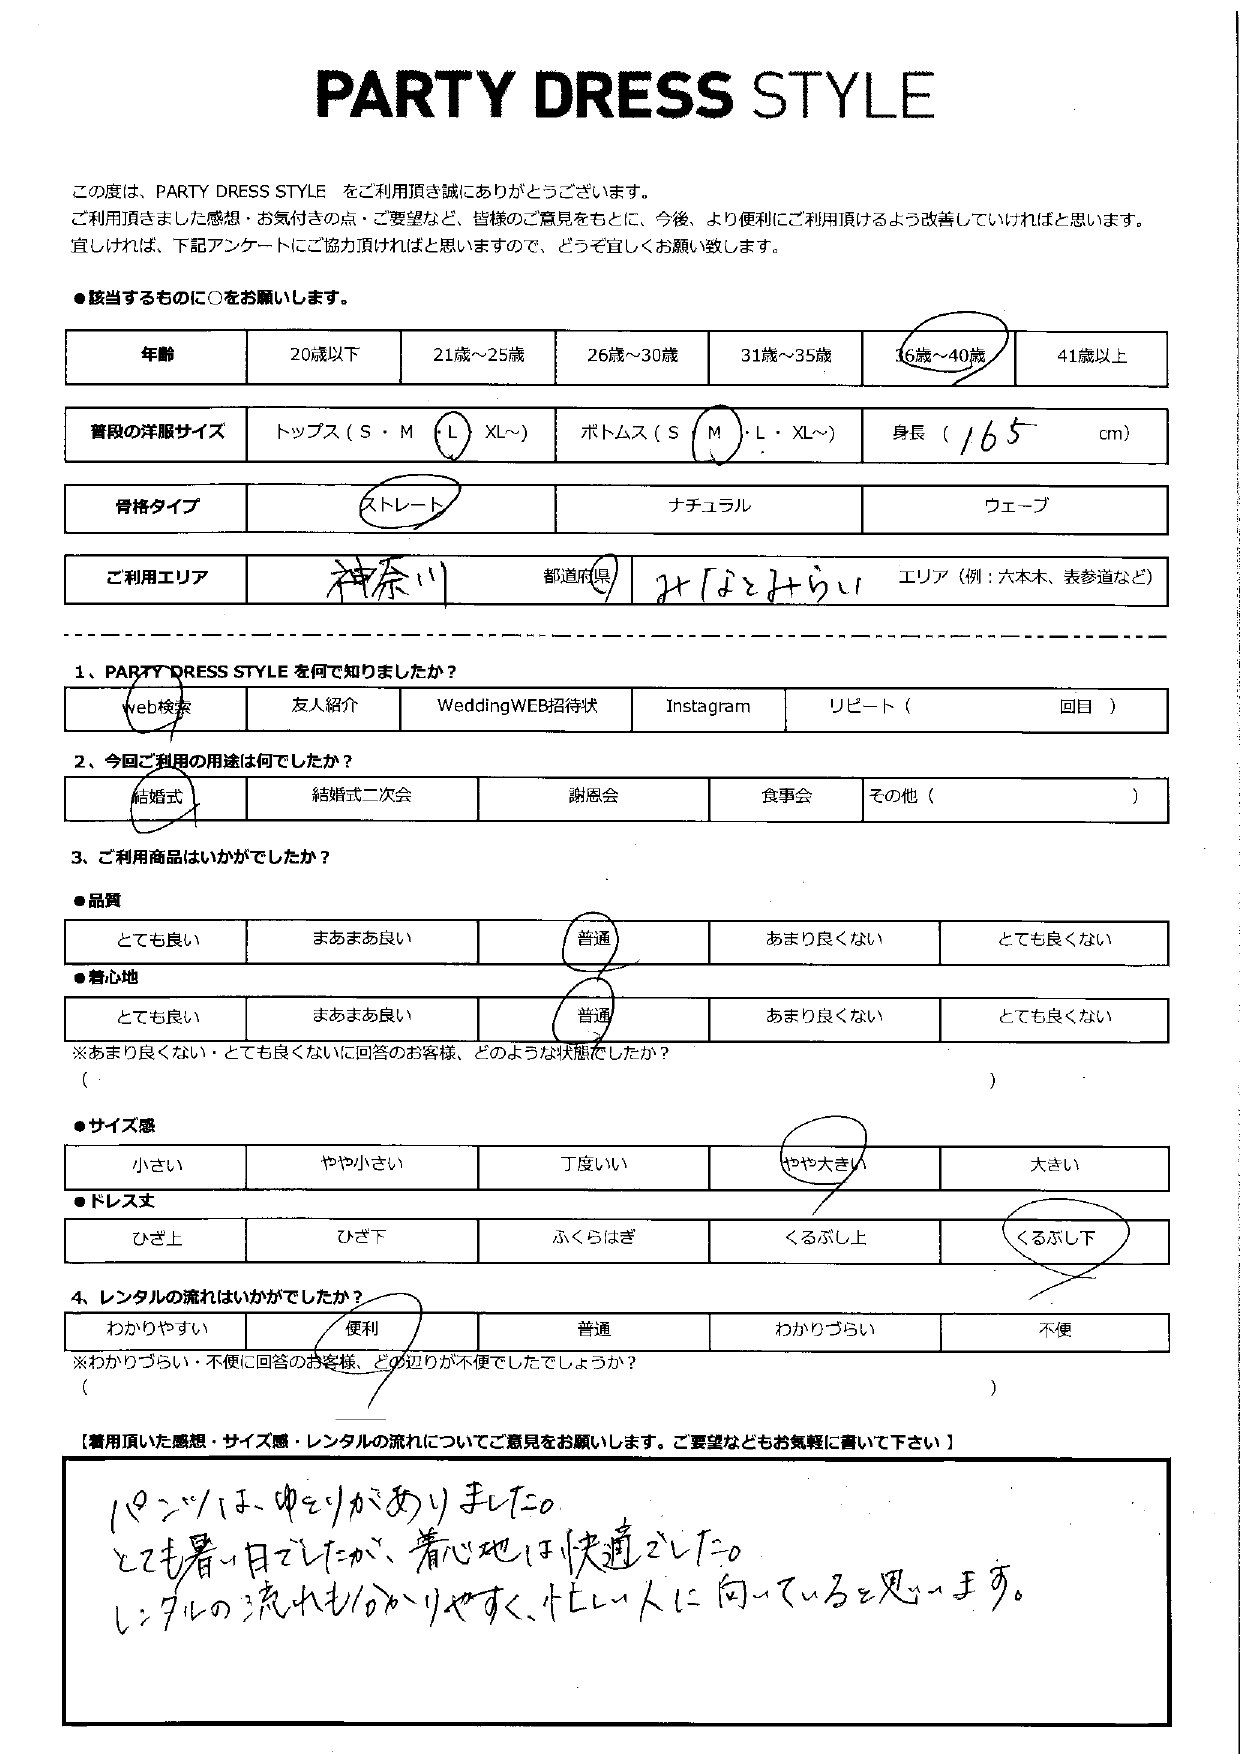 PARTY DRESS STYLE
この度は、PARTY DRESS STYLE をご利用頂き誠にありがとうございます。
ご利用頂きました感想・お気付きの点・ご要望など、皆様のご意見をもとに、今後、より便利にご利用頂けるよう改善していければと思います。
宜しければ、下記アンケートにご協力頂ければと思いますので、どうぞ宜しくお願い致します。
●該当するものに○をお願いします。
年齢 20歳以下 21歳～25歳 26歳～30歳 31歳～35歳 36歳～40歳 41歳以上
普段の洋服サイズ トップス ( S ・ M ・ L ・ XL～) ボトムス ( S ・ M ・ L ・ XL～) 身長 ( 165 cm)
骨格タイプ ストレート ナチュラル ウェーブ
ご利用エリア 神奈川 都道府県 みなとみらい エリア（例：六本木、表参道など）
1、PARTY DRESS STYLE を何で知りましたか？
web検索 友人紹介 WeddingWEB招待状 Instagram リピート ( 回目 )
2、今回ご利用の用途は何でしたか？
結婚式 結婚式二次会 謝恩会 食事会 その他 ( )
3、ご利用商品はいかがでしたか？
●品質
とても良い まあまあ良い 普通 あまり良くない とても良くない
●着心地
とても良い まあまあ良い 普通 あまり良くない とても良くない
※あまり良くない・とても良くないに回答のお客様、どのような状態でしたか？
( )
●サイズ感
小さい やや小さい 丁度いい やや大きい 大きい
●ドレス丈
ひざ上 ひざ下 ふくらはぎ くるぶし上 くるぶし下
4、レンタルの流れはいかがでしたか？
わかりやすい 便利 普通 わかりづらい 不便
※わかりづらい・不便に回答のお客様、どの辺りが不便でしたでしょうか？
( )
【着用頂いた感想・サイズ感・レンタルの流れについてご意見をお願いします。ご要望などもお気軽に書いて下さい 】
パンツは、ゆとりがありました。
とても暑い日でしたが、着心地は快適でした。
レンタルの流れも分かりやすく、忙しい人に向いていると思います。